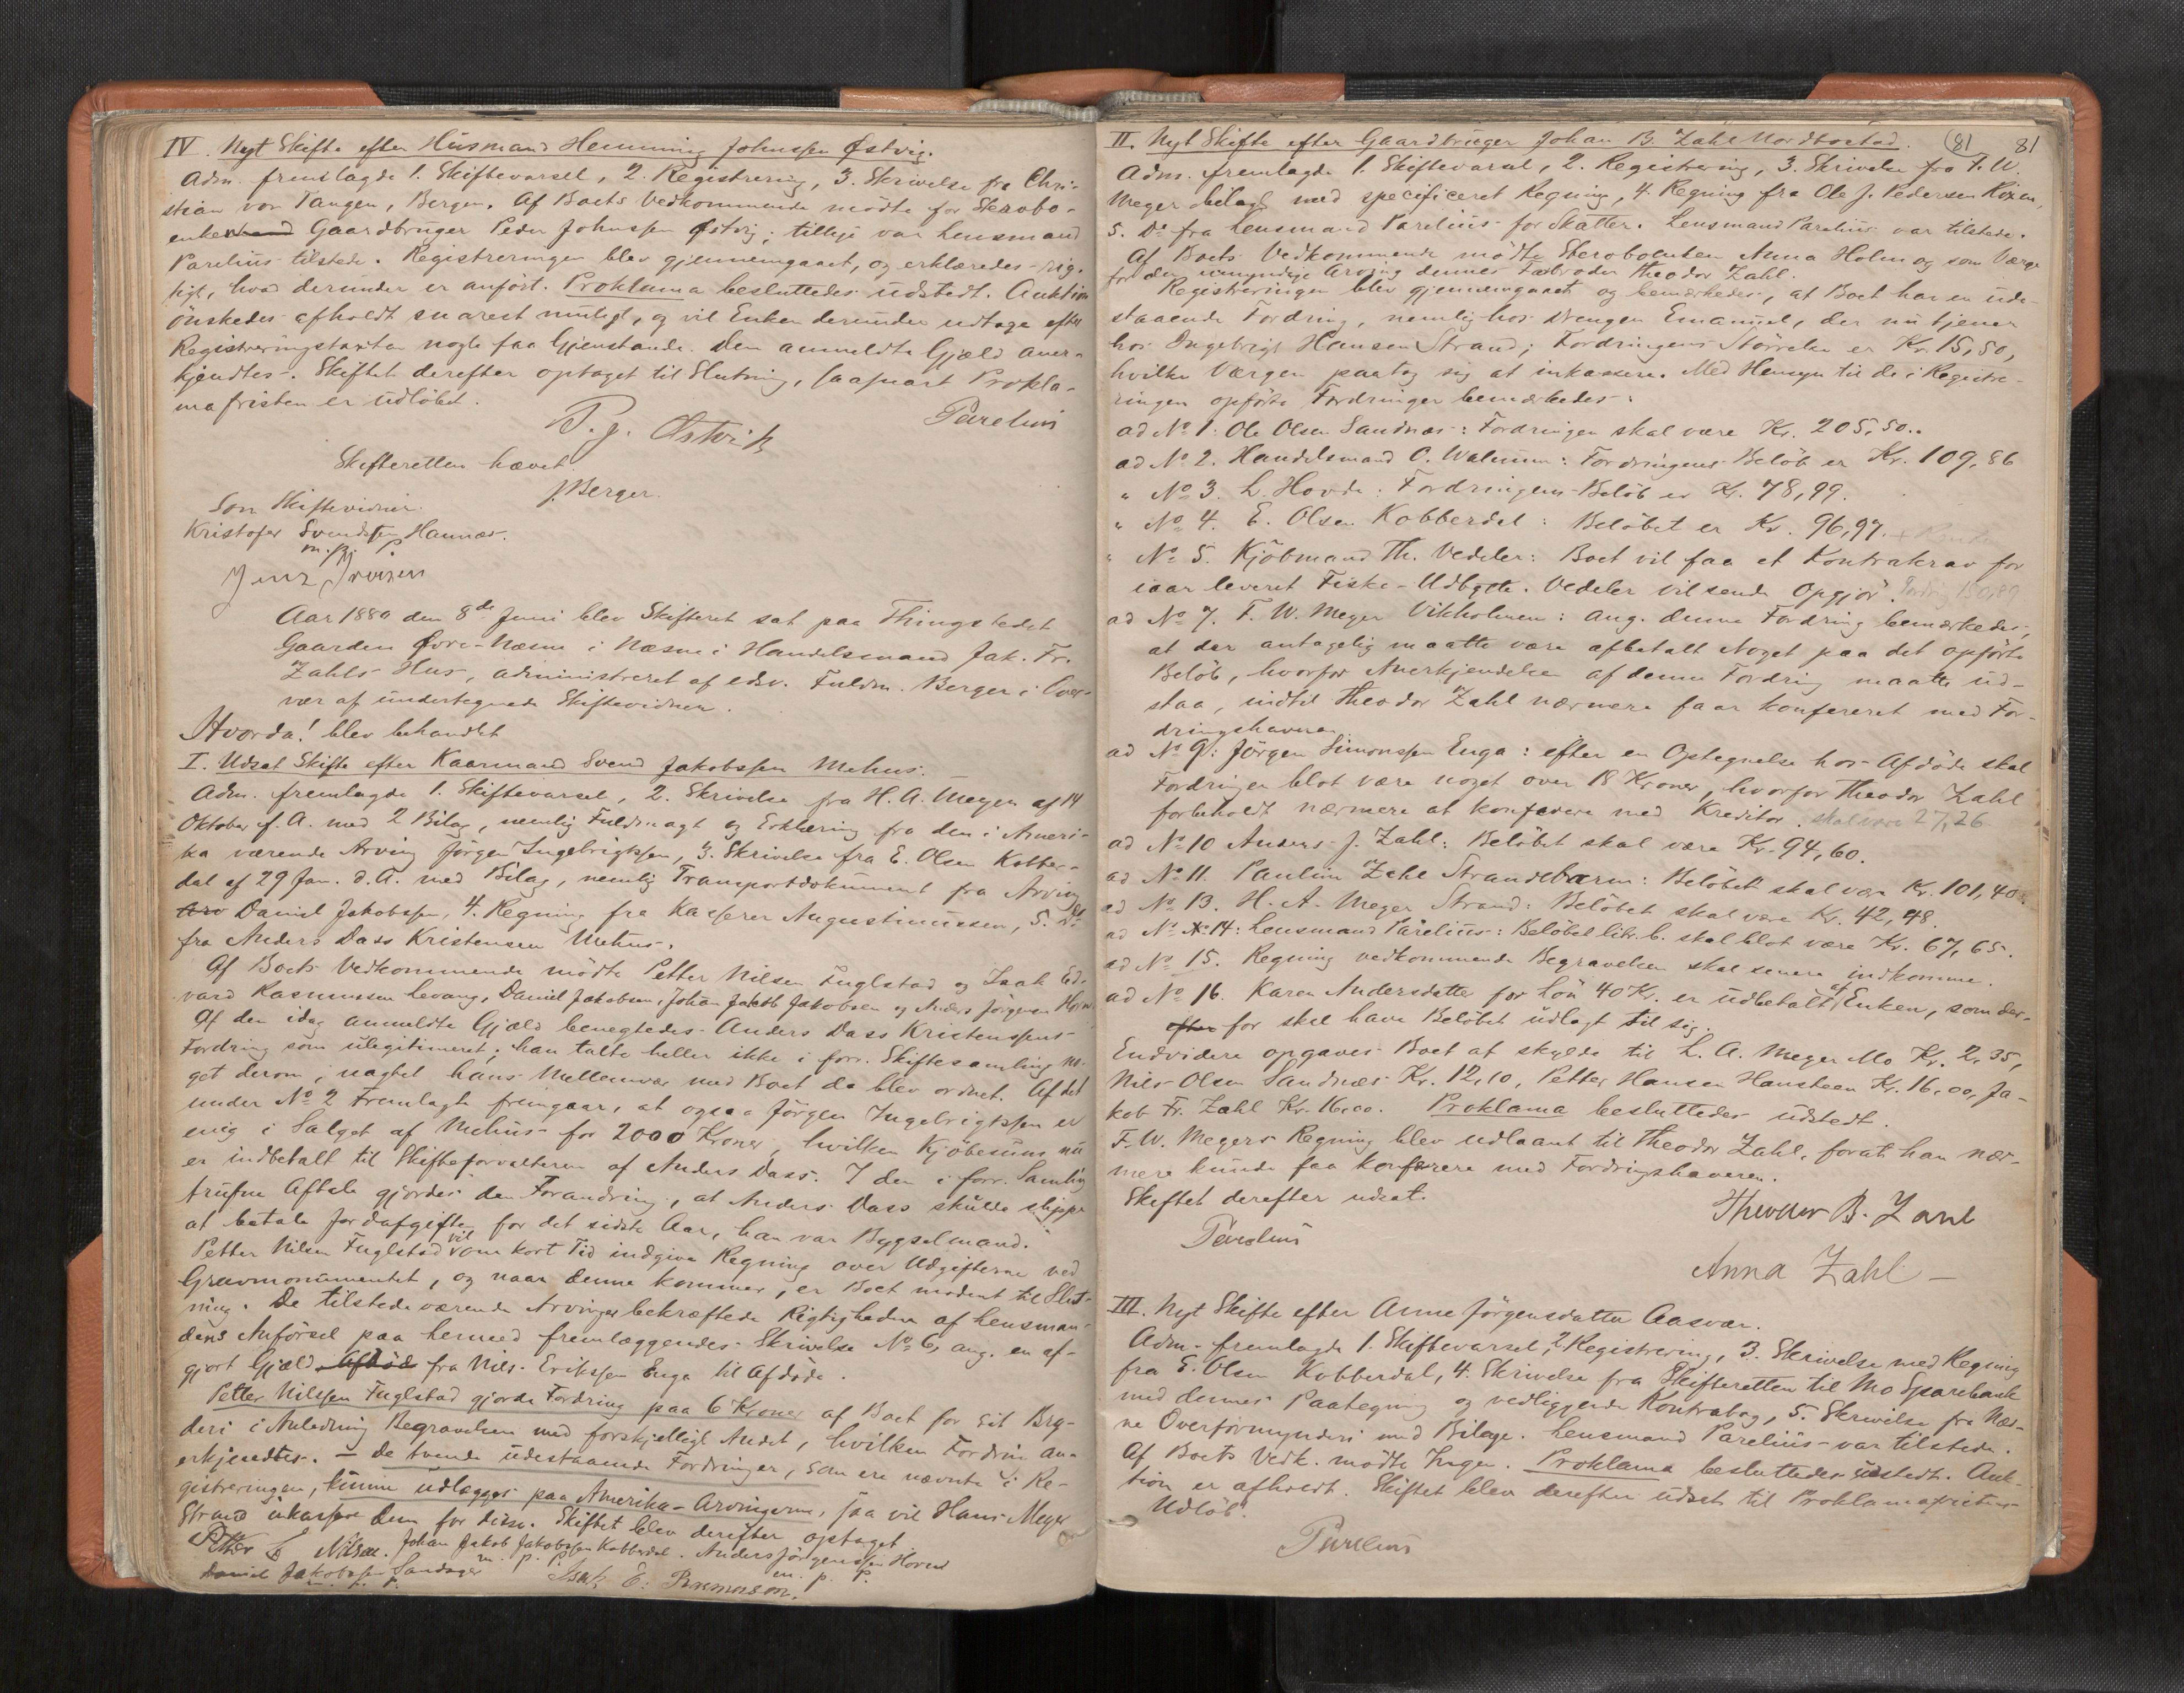 IV. Nyt Skifte efter Husmand Hemming Johnssen Østvig.
Adm. fremlagde 1. Skiftevarsel, 2. Registrering, 3. Skrivelse fra Chri-
stian von Tangen, Bergen. Af Boets Vedkommende mødte for Sterbo-
enken Gaardbruger Peder Johnssen Østvig; tillige var Lensmand
Parelius tilstede. Registreringen blev gjennemgaaet, og erklæredes rig-
tigt, hvad derunder er anført. Proklama besluttedes udstedt. Auktion
ønskedes afholdt snarest muligt, og vil Enken derunder udtage efter
Registreringstaxten nogle faa Gjenstande. Den anmeldte Gjæld aner-
kjendtes. Skiftet derefter optaget til Slutning, saasnart Prokla-
mafristen er udløbet.
P. J. Østvik
Parelius
Skifteretten hævet
J. Berger.
Som Skiftevidner
Kristofer Svendsen Hannæs.
m. p. P.
Jens Iversen
Aar 1880 den 8de Juni blev Skifteret sat paa Thingstedet
Gaarden Øvre-Næsne i Næsne i Handelsmand Jak. Fr.
Zahls Hus, administreret af edsv. Fuldm. Berger i Over-
vær af undertegnede Skiftevidner.
Hvorda! blev behandlet
I. Udsat Skifte efter Kaarmand Svend Jakobssen Mehus.
Adm. fremlagde 1. Skiftevarsel, 2. Skrivelse fra H. A. Meyer af 14
Oktober f. A. med 2 Bilag, nemlig Fuldmagt og Erklæring fra den i Ameri-
ka værende Arving Jørgen Ingebrigtssen, 3. Skrivelse fra E. Olsen Kobber-
dal af 29 Jan. d. A. med Bilag, nemlig Transportdokument fra Arving
Daniel Jakobssen, 4. Regning fra Kasserer Augustinussen, 5. Do
fra Anders Dass Kristensen Mehus.
Af Boets Vedkommende mødte Petter Nilsen Fuglstad og Isak Ed-
vard Rasmussen Levang, Daniel Jakobsen, Johan Jakob Jakobsen og Anders Jørgensen
Af den idag anmeldte Gjæld benegtedes Anders Dass Kristenssens
Fordring som ulegitimeret; han talte heller ikke i forr. Skiftesamling no-
get derom, uagtet hans Mellemvær med Boet da blev ordnet. Af det
under No 2 Fremlagte fremgaar, at ogsaa Jørgen Ingebrigtssen er
enig i Salget af Mehus for 2000 Kroner, hvilken Kjøbesum nu
er indbetalt til Skifteforvalteren af Anders Dass. I den i forr. Samling
trufne Aftale gjordes den Forandring, at Anders Dass skulde slippe
at betale Jordafgiften for det sidste Aar, han var Bygselmand.
Petter Nilsen Fuglstad vil om kort Tid indgive Regning over Udgifterne ved
Gravmonumentet, og naar denne kommer, er Boet modent til Slut-
ning. De tilstedeværende Arvinger bekræftede Rigtigheden af Lensman-
dens Anførsel paa hermed fremlæggendes Skrivelse No 6, ang. en af-
gjort Gjæld Afdød fra Nils Erikssen Enga til Afdøde.
Petter Nilssen Fuglstad gjorde Fordring paa 6 Kroner af Boet for sit Bry-
deri i Anledning Begravelsen med forskjelligt Andet, hvilken Fordrin an-
erkjendtes. – De tvende udestaaende Fordringer, som ere nævnte i Re-
gistreringen, kunne udlægges paa Amerika-Arvingerne, saa vil Hans Meyer
Strand inkassere dem for disse. Skiftet blev derefter optaget
Petter Nilsen. Johan Jakob Jakobssen Kobberdal. Anders Jørgenssen
m. p. P. m. p. P.
Daniel Jakobssen Sandager Isak E. Rasmussen.
m. p. P.
81 81
II. Nyt Skifte efter Gaardbruger Johan B. Zahl Nordbostad.
Adm. fremlagde 1. Skiftevarsel, 2. Registrering, 3. Skrivelse fra F. W.
Meyer bilagt med specificeret Regning, 4. Regning fra Ole J. Pedersen
5. Do fra Lensmand Parelius for Skatter. Lensmand Parelius var tilstede.
Af Boets Vedkommende mødte Sterboenken Anna Holm og som Værge
for den umyndige Arving dennes Farbroder Theodor Zahl.
Registreringen blev gjennemgaaet og bemærkedes, at Boet har en ude-
staaende Fordring, nemlig hos Drengen Emanuel, der nu tjener
hos Ingebrigt Hansen Strand; Fordringens Størrelse er Kr. 15,50,
hvilke Værgen paatog sig at inkassere. Med Hensyn til de i Registre-
ringen opførte Fordringer bemærkedes:
ad No 1. Ole Olsen Sandnæs: Fordringen skal være Kr. 205,50.
ad No 2. Handelsmand C. Walnum: Fordringens Beløb er Kr. 109,86
" No 3. L. Hovde: Fordringens Beløb er Kr. 78,99.
" No 4. E. Olsen Kobberdal: Beløbet er Kr. 96,97. + Renter
" No 5. Kjøbmand Th. Vedeler: Boet vil faa et Kontrakrav for
iaar leveret Fiske-Udbytte. Vedeler vil sende Opgjør. Fordrg 150,89
ad No 7. F. W. Meyer Vikholmen: ang. denne Fordring bemærkedes,
at der antagelig maatte være afbetalt Noget paa det opførte
Beløb, hvorfor Anerkjendelse af denne Fordring maatte ud-
staa, indtil Theodor Zahl nærmere faar konfereret med For-
dringshaveren.
ad No 9: Jørgen Simonssen Enga: efter en Optegnelse hos Afdøde skal
Fordringen blot være noget over 18 Kroner, hvorfor Theodor Zahl
forbeholdt nærmere at konferere med Kreditor. skal være 27,26
ad No 10 Anders J. Zahl: Beløbet skal være Kr. 94,60.
ad No 11. Pauline Zahl Strandebarm: Beløbet skal være Kr. 101,40.
ad No 13. H. A. Meyer Strand: Beløbet skal være Kr. 42,48.
ad No 14: Lensmand Parelius: Beløbet litr. b. skal blot være Kr. 67,65.
ad No 15. Regning vedkommende Begravelsen skal senere indkomme.
ad No 16. Karen Andersdatter for Løn 40 Kr. er udbetalt af Enken, som der-
efter for skal have Beløbet udlagt til sig.
Endvidere opgaves Boet at skylde til L. A. Meyer Mo Kr. 2,35,
Nils Olsen Sandnæs Kr. 12,10, Petter Hansen Hansteen Kr. 16,00, Ja-
kob Fr. Zahl Kr. 16,00. Proklama besluttedes udstedt.
F. W. Meyers Regning blev udlaant til Theodor Zahl, forat han nær-
mere kunde faa konferere med Fordringshaveren.
Skiftet derefter udsat.
Theodor B. Zahl
Parelius
Anna Zahl –
III. Nyt Skifte efter Anne Jørgensdatter Aasvær.
Adm. fremlagde 1. Skiftevarsel, 2 Registrering, 3. Skrivelse med Regning
fra E. Olsen Kobberdal, 4. Skrivelse fra Skifteretten til Mo Sparebank
med dennes Paategning og vedliggende Kontrabog, 5. Skrivelse fra Næs-
ne Overformynderi med Bilage. Lensmand Parelius var tilstede.
Af Boets Vedk. mødte Ingen. Proklama besluttedes udstedt. Auk-
tion er afholdt. Skiftet blev derefter udsat til Proklamafristens
Udløb.
Parelius